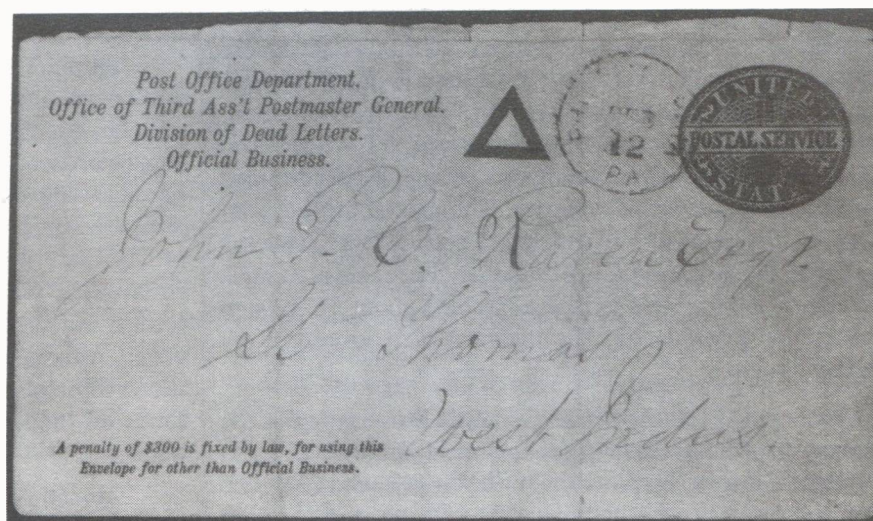 Post Office Department.
Office of Third Ass'l Postmaster General.
Division of Dead Letters.
Official Business.
12
PA
UNITED
POSTAL SERVICE
STATES
John P. C. Raven Esqr.
St Thomas
West Indies.
A penalty of $300 is fixed by law, for using this
Envelope for other than Official Business.